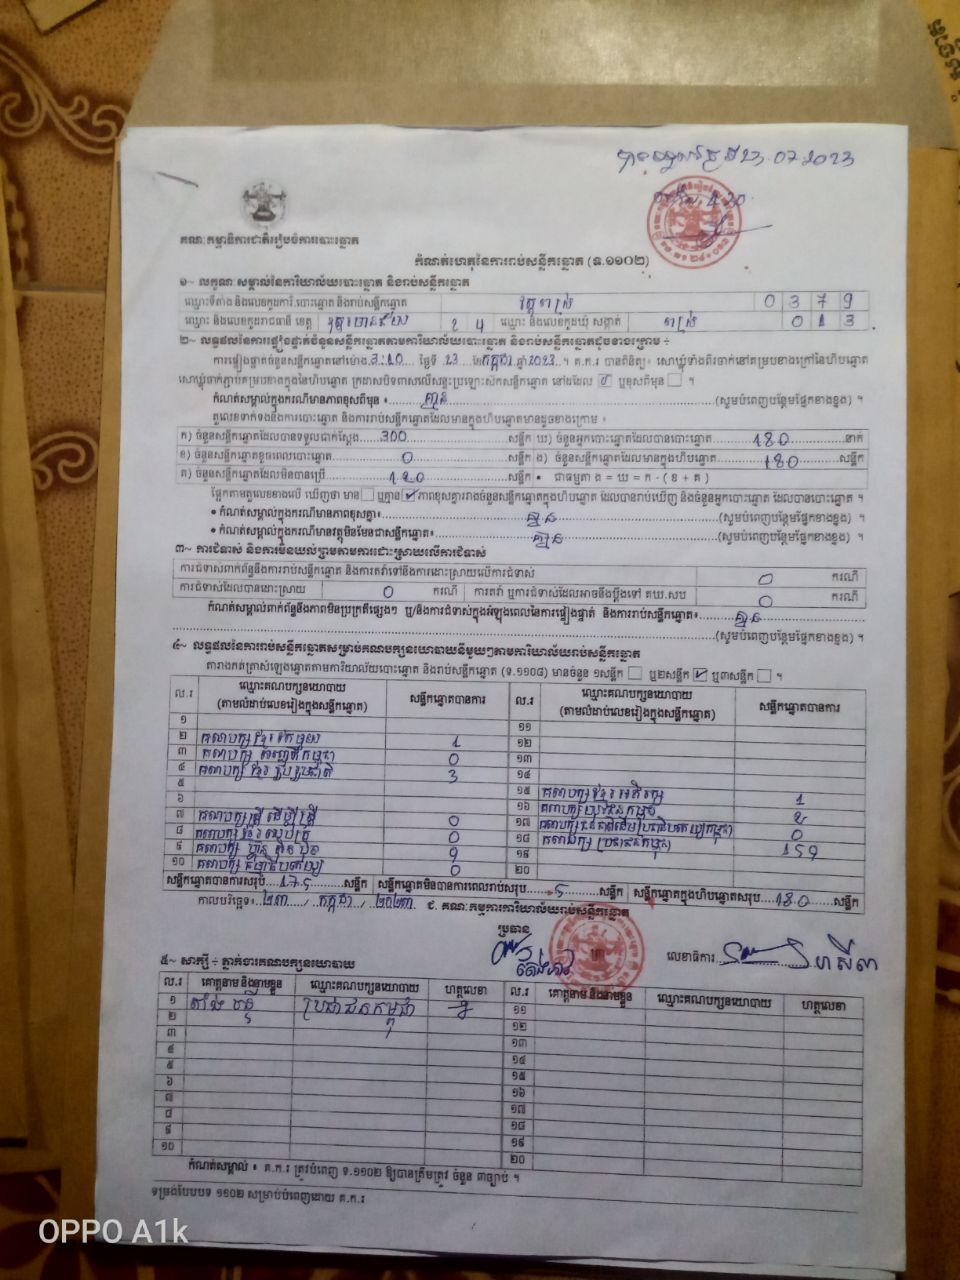 23.07.2023
គណៈកម្មាធិការជាតិរៀបចំការបោះឆ្នោត
កំណត់ហេតុនៃការរាប់សន្លឹកឆ្នោត (ទ.១១០២)
១~ លក្ខណៈសម្គាល់នៃការិយាល័យបោះឆ្នោត និងរាប់សន្លឹកឆ្នោត
ឈ្មោះទីតាំង និងលេខកូដការិ.បោះឆ្នោត និងរាប់សន្លឹកឆ្នោត 0 3 7 9
ឈ្មោះ និងលេខកូដរាជធានី ខេត្ត ឈ្មោះ និងលេខកូដឃុំ សង្កាត់ 0 1 3
២~ លទ្ធផលនៃការផ្ទៀងផ្ទាត់ចំនួនសន្លឹកឆ្នោតតាមការិយាល័យបោះឆ្នោត និងរាប់សន្លឹកឆ្នោតដូចខាងក្រោម ÷
ការផ្ទៀងផ្ទាត់ចំនួនសន្លឹកឆ្នោតនៅម៉ោង 3:10 ថ្ងៃទី 23 ខែ កក្កដា ឆ្នាំ 2023 ។ គ.ក.រ បានពិនិត្យ៖ សោឃ្លុំទាំងពីរចាក់នៅគម្របខាងក្រៅនៃហិបឆ្នោត
កំណត់សម្គាល់ក្នុងករណីមានភាពខុសពីមុន ៖ គ្មាន (សូមបំពេញបន្ថែមផ្នែកខាងខ្នង) ។
តួលេខទាក់ទងនឹងការបោះឆ្នោត និងការរាប់សន្លឹកឆ្នោតដែលមានក្នុងហិបឆ្នោតមានដូចខាងក្រោម ៖
ក) ចំនួនសន្លឹកឆ្នោតដែលបានទទួលជាក់ស្ដែង 300 សន្លឹក ឃ) ចំនួនអ្នកបោះឆ្នោតដែលបានបោះឆ្នោត 180 នាក់
ខ) ចំនួនសន្លឹកឆ្នោតខូចពេលបោះឆ្នោត 0 សន្លឹក ង) ចំនួនសន្លឹកឆ្នោតដែលមានក្នុងហិបឆ្នោត 180 សន្លឹក
គ) ចំនួនសន្លឹកឆ្នោតដែលមិនបានប្រើ 120 សន្លឹក • ជាធម្មតា ង = ឃ = ក - ( ខ + គ )
ផ្អែកតាមតួលេខខាងលើ ឃើញថា មាន ឬគ្មាន ✓ ភាពខុសគ្នារវាងចំនួនសន្លឹកឆ្នោតក្នុងហិបឆ្នោត ដែលបានរាប់ឃើញ និងចំនួនអ្នកបោះឆ្នោត ដែលបានបោះឆ្នោត ។
• កំណត់សម្គាល់ក្នុងករណីមានភាពខុសគ្នា៖ គ្មាន (សូមបំពេញបន្ថែមផ្នែកខាងខ្នង) ។
• កំណត់សម្គាល់ក្នុងករណីមានវត្ថុមិនមែនជាសន្លឹកឆ្នោត៖ គ្មាន (សូមបំពេញបន្ថែមផ្នែកខាងខ្នង) ។
៣~ ការជំទាស់ និងការមិនយល់ព្រមតាមការដោះស្រាយលើការជំទាស់
ការជំទាស់ពាក់ព័ន្ធនឹងការរាប់សន្លឹកឆ្នោត និងការតវ៉ាទៅនឹងការដោះស្រាយលើការជំទាស់ 0 ករណី
ការជំទាស់ដែលបានដោះស្រាយ 0 ករណី ការតវ៉ា ឬការជំទាស់ដែលអាចនឹងប្ដឹងទៅ គឃ.សប 0 ករណី
កំណត់សម្គាល់ពាក់ព័ន្ធនឹងភាពមិនប្រក្រតីផ្សេងៗ ឬ/និងការជំទាស់ក្នុងអំឡុងពេលនៃការផ្ទៀងផ្ទាត់ និងការរាប់សន្លឹកឆ្នោត៖ គ្មាន
(សូមបំពេញបន្ថែមផ្នែកខាងខ្នង) ។
៤~ លទ្ធផលនៃការរាប់សន្លឹកឆ្នោតសម្រាប់គណបក្សនយោបាយនីមួយៗតាមការិយាល័យរាប់សន្លឹកឆ្នោត
តារាងកត់ត្រាសំឡេងឆ្នោតតាមការិយាល័យបោះឆ្នោត និងរាប់សន្លឹកឆ្នោត (ទ.១១០៨) មានចំនួន ១សន្លឹក ឬ២សន្លឹក ✓ ឬ៣សន្លឹក ។
ល.រ ឈ្មោះគណបក្សនយោបាយ (តាមលំដាប់លេខរៀងក្នុងសន្លឹកឆ្នោត) សន្លឹកឆ្នោតបានការ ល.រ ឈ្មោះគណបក្សនយោបាយ (តាមលំដាប់លេខរៀងក្នុងសន្លឹកឆ្នោត) សន្លឹកឆ្នោតបានការ
១ ១១
២ គណបក្ស ខ្មែរ 1 ១២
៣ គណបក្ស 0 ១៣
៤ គណបក្ស ខ្មែរ រួបរួមជាតិ 3 ១៤
៥ ១៥ គណបក្ស ខ្មែរ អភិរក្ស 1
៦ ១៦ គណបក្ស យុវជនកម្ពុជា 2
៧ គណបក្ស ស្ត្រី ដើម្បី ស្ត្រី 0 ១៧ 0
៨ គណបក្ស ខ្មែរ 0 ១៨ គណបក្ស ប្រជាជនកម្ពុជា 159
៩ គណបក្ស 9 ១៩
១០ គណបក្ស 0 ២០
សន្លឹកឆ្នោតបានការសរុប 175 សន្លឹក សន្លឹកឆ្នោតមិនបានការពេលរាប់សរុប 5 សន្លឹក សន្លឹកឆ្នោតក្នុងហិបឆ្នោតសរុប 180 សន្លឹក
កាលបរិច្ឆេទ៖ ២៣ / កក្កដា / ២០២៣ ជ. គណៈកម្មការការិយាល័យរាប់សន្លឹកឆ្នោត
ប្រធាន
លេខាធិការ
៥~ សាក្សី ÷ ភ្នាក់ងារគណបក្សនយោបាយ
ល.រ គោត្តនាម និងនាមខ្លួន ឈ្មោះគណបក្សនយោបាយ ហត្ថលេខា ល.រ គោត្តនាម និងនាមខ្លួន ឈ្មោះគណបក្សនយោបាយ ហត្ថលេខា
១ ប្រជាជនកម្ពុជា ១១
២ ១២
៣ ១៣
៤ ១៤
៥ ១៥
៦ ១៦
៧ ១៧
៨ ១៨
៩ ១៩
១០ ២០
កំណត់សម្គាល់ ៖ គ.ក.រ ត្រូវបំពេញ ទ.១១០២ ឱ្យបានត្រឹមត្រូវ ចំនួន ៣ច្បាប់ ។
ទម្រង់បែបបទ ១១០២ សម្រាប់បំពេញដោយ គ.ក.រ
OPPO A1k